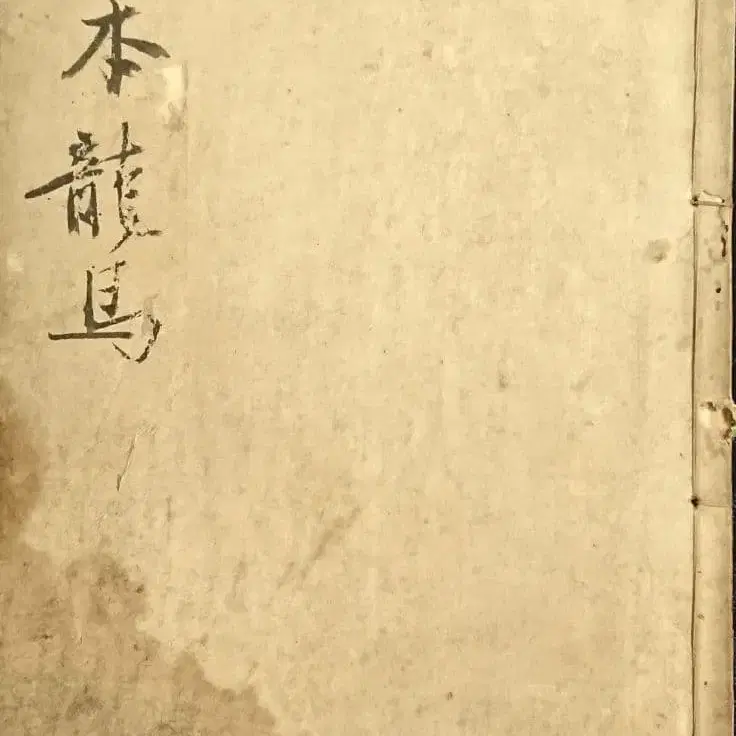 本龍馬